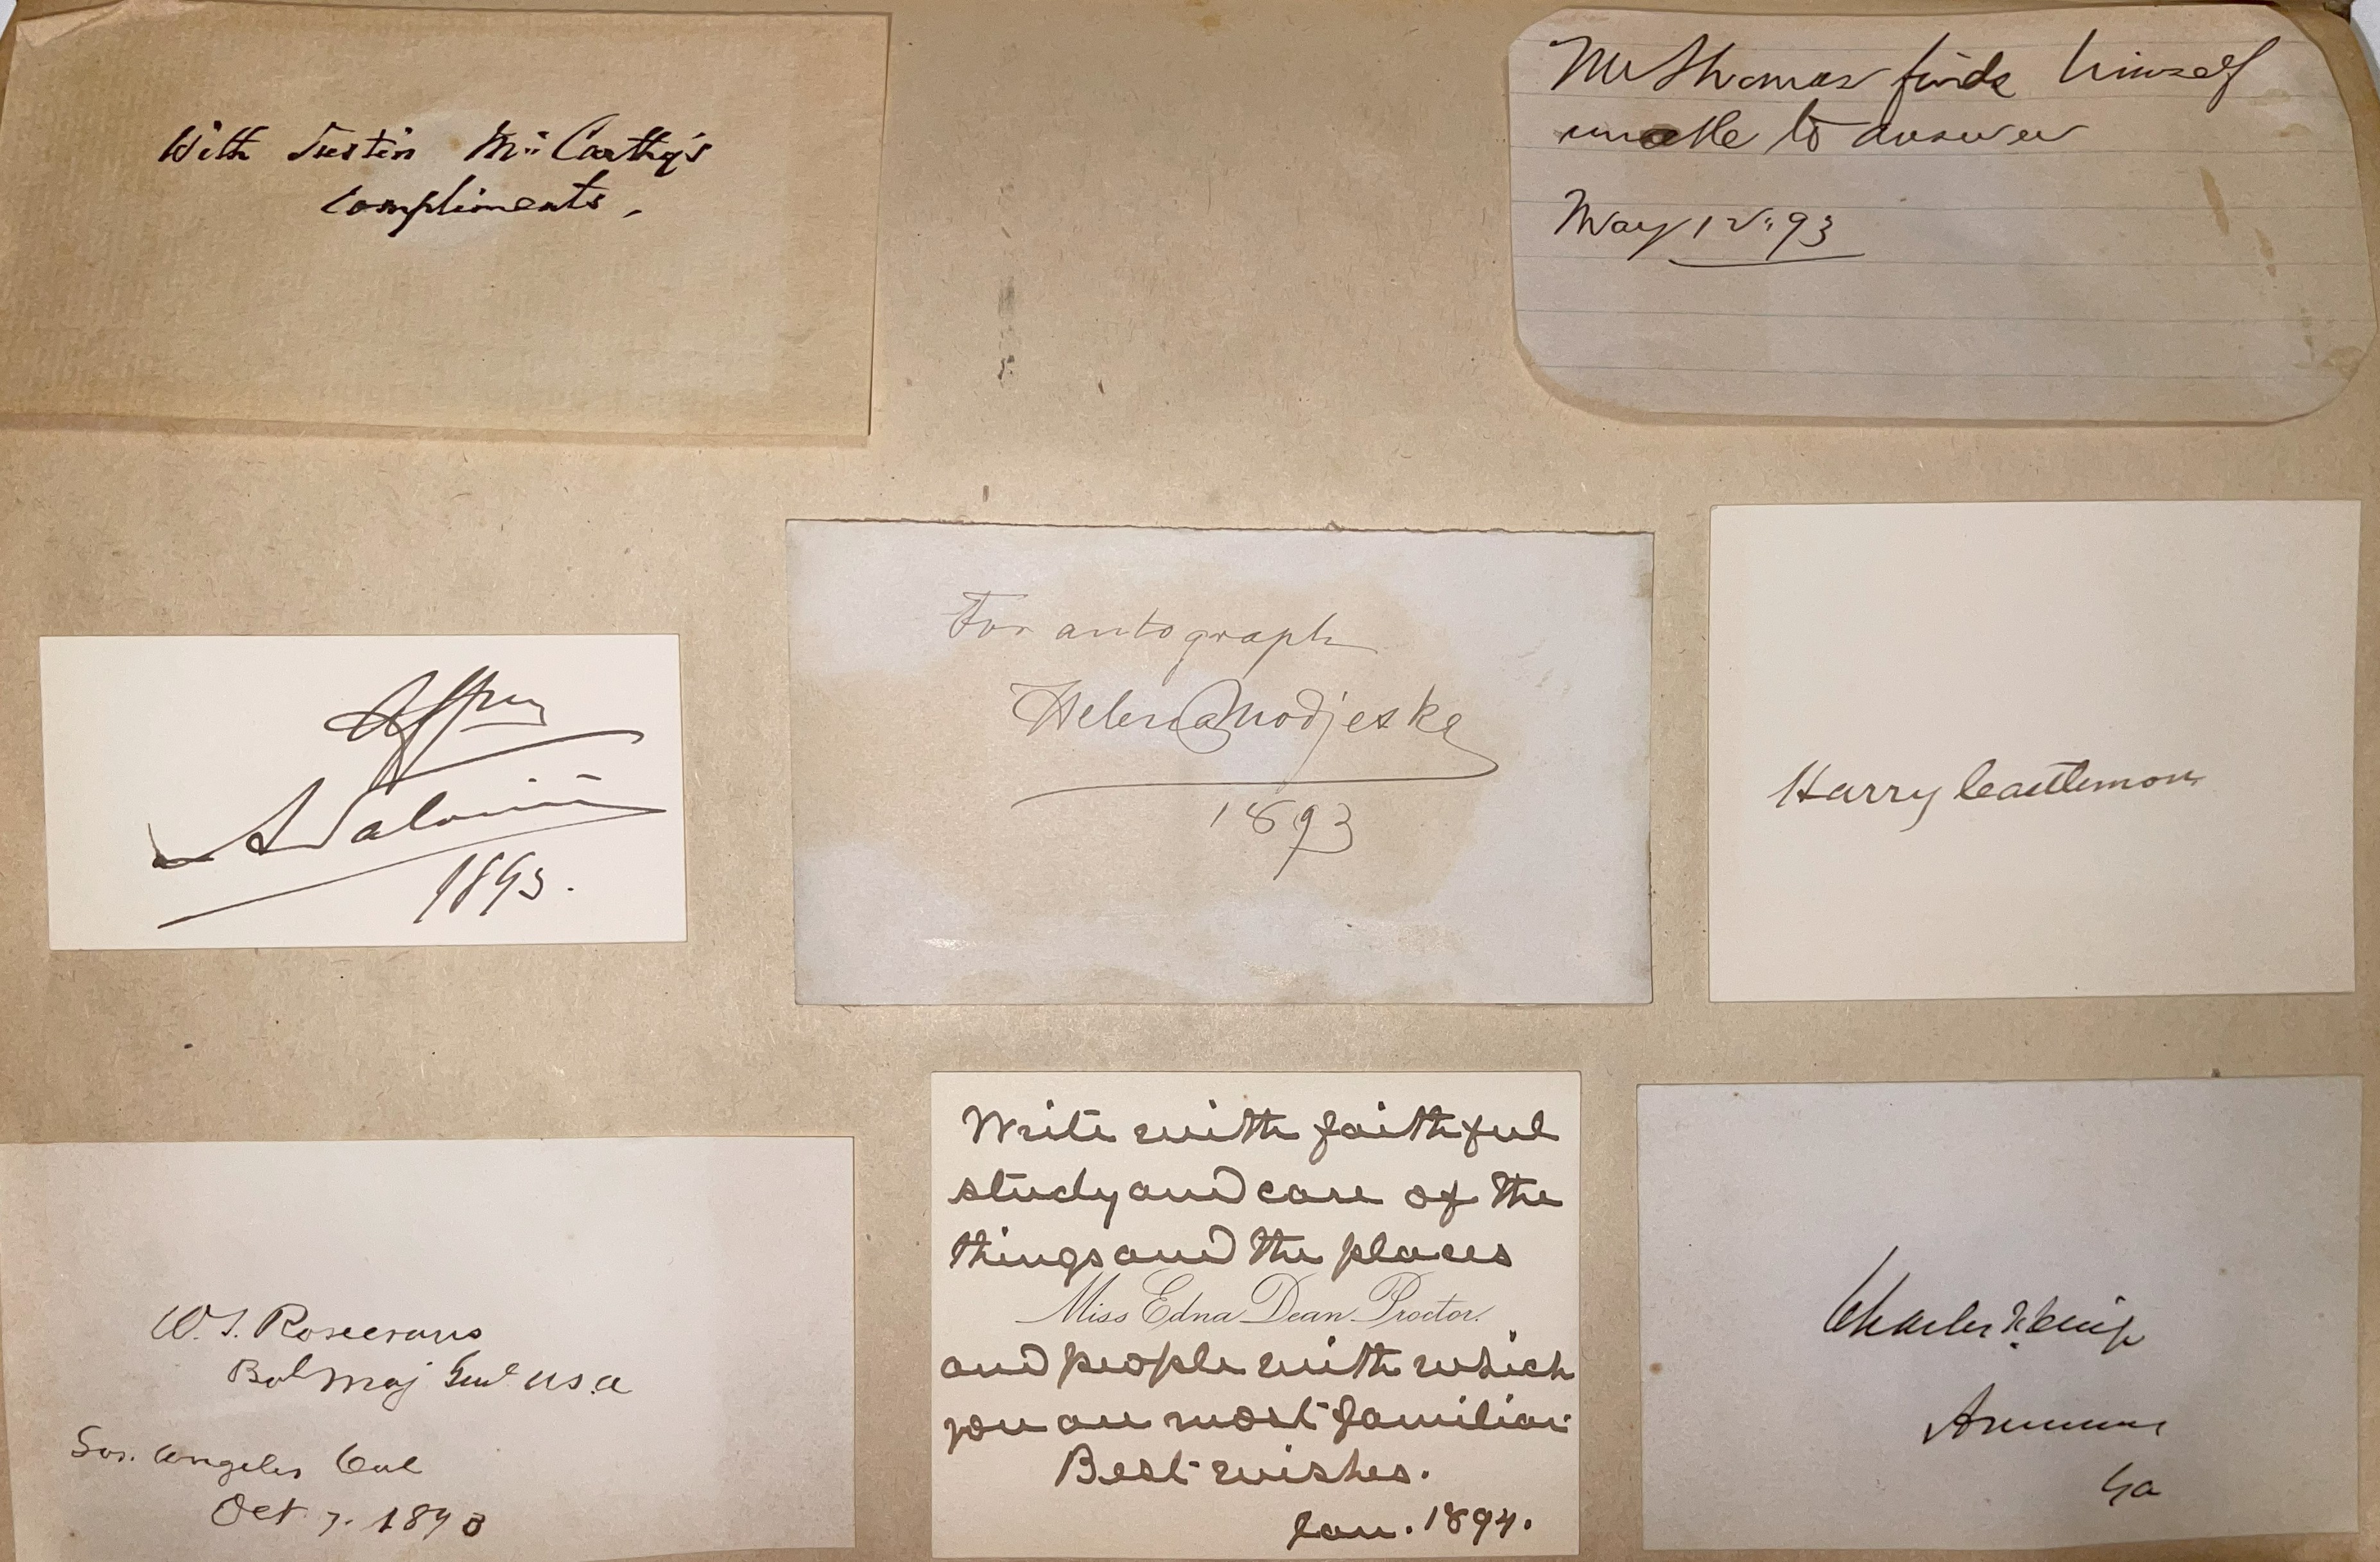 With Justin McCarthy's
compliments.
Mr Thomas finds himself
unable to answer
May 12:93
1893.
For autograph
Helena Modjeska
1893
Harry Castlemon
W. S. Rosecrans
Maj Genl USA
Los Angeles Cal
Oct 7. 1893
Write with faithful
study and care of the
things and the places
Miss Edna Dean Proctor.
and people with which
you are most familiar.
Best wishes.
Jan. 1894.
Charles